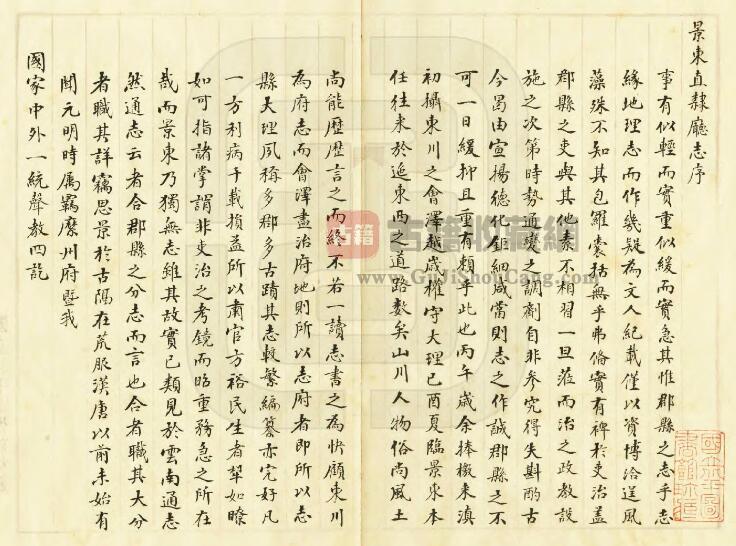 景東直隸廳志序
事有似輕而實重似緩而實急其惟郡縣之志乎志
緣地理志而作幾疑為文人紀載僅以資博洽逞風
藻殊不知其包羅囊括無乎弗備實有裨於吏治蓋
郡縣之吏與其他素不相習一旦蒞而治之政教設
施之次第時勢通變之調劑自非參究得失斟酌古
今曷由宣揚德化鉅細咸當則志之作誠郡縣之不
可一日緩抑且重有賴乎此也丙午歲余捧檄來滇
初攝東川之會澤越歲權守大理己酉夏臨景東本
任往來於迤東西之道路數矣山川人物俗尚風土
尚能歷歷言之而終不若一讀志書之為快顧東川
為府志而會澤盡治府地則所以志府者即所以志
縣大理夙稱多郡多古蹟其志較繁編纂亦完好凡
一方利病千載損益所以肅官方裕民生者犖如瞭
如可指諸掌謂非吏治之考鏡而昭重務急之所在
哉而景東乃獨無志雖其故實已類見於雲南通志
然通志云者合郡縣之分志而言也合者職其大分
者職其詳竊思景東於古隅在荒服漢唐以前未始有
聞元明時屬羈縻州府暨我
國家中外一統聲教四訖
古籍收藏網
www.GuJiShouCang.com